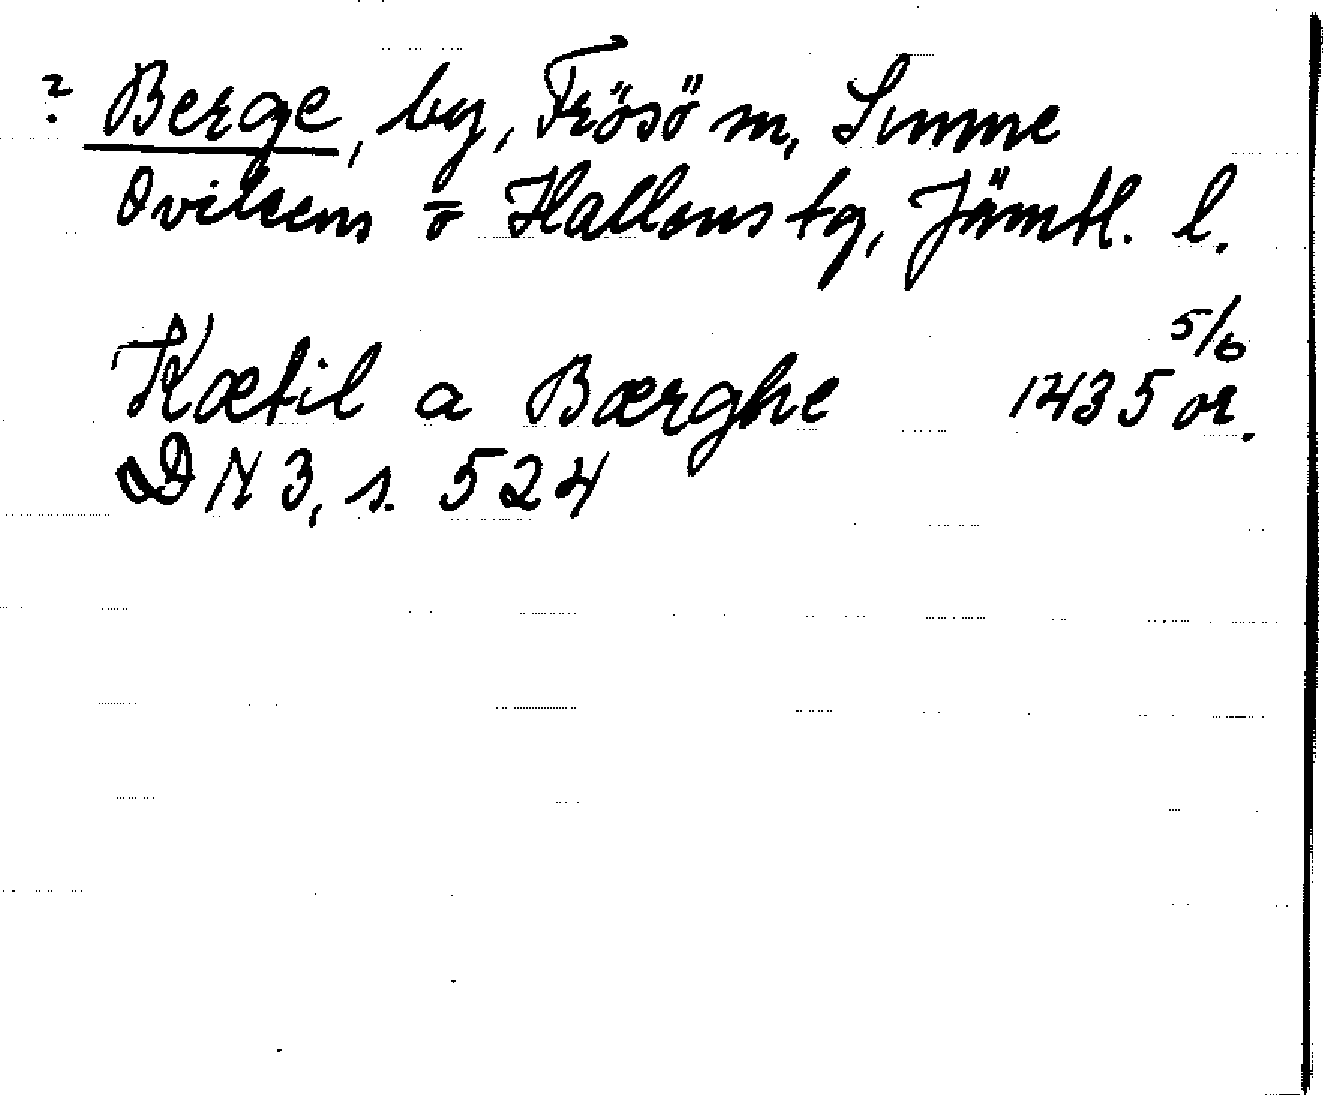 ? Berge, by, Frösö m, Sunne
Ovikens o Hallens tg, Jämtl. l.
Kætil a Bærghe 1435 5/6 or.
DN 3, s. 524